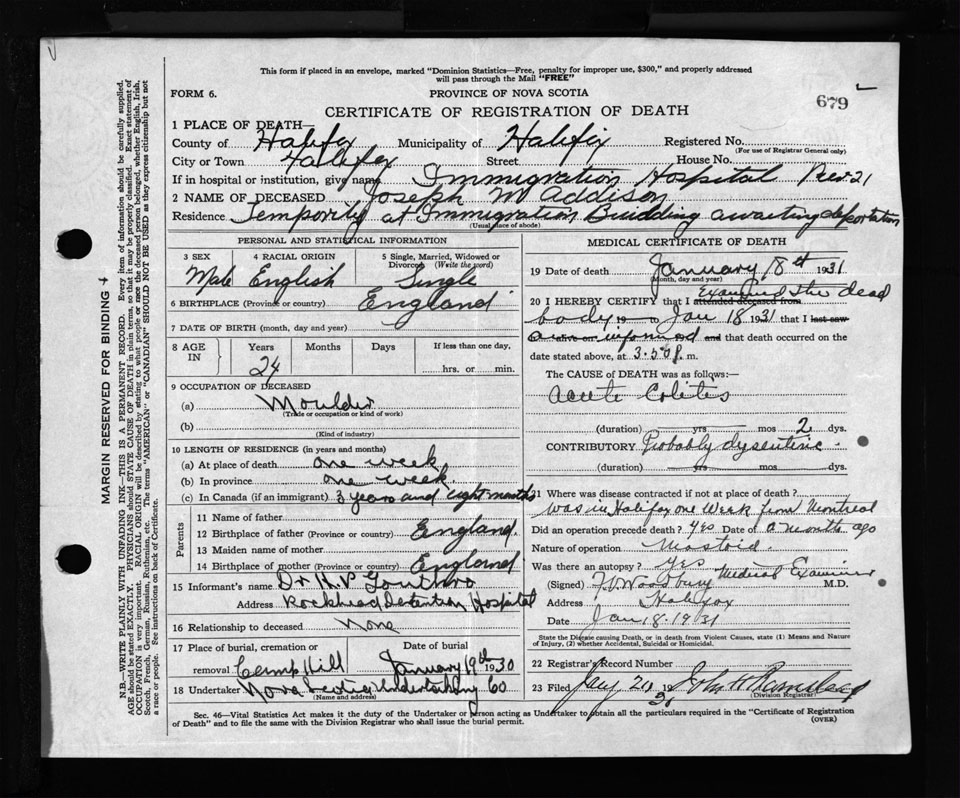 This form if placed in an envelope, marked "Dominion Statistics—Free, penalty for improper use, $300," and properly addressed
will pass through the Mail "FREE"
FORM 6.
PROVINCE OF NOVA SCOTIA
679
CERTIFICATE OF REGISTRATION OF DEATH
1 PLACE OF DEATH—
County of Halifax Municipality of Halifix Registered No.
(For use of Registrar General only)
City or Town Halifax Street House No.
If in hospital or institution, give name Immigration Hospital Pier 21
2 NAME OF DECEASED Joseph M Addison
Residence Temporily at Immigration Building awaiting deportation
(Usual place of abode)
PERSONAL AND STATISTICAL INFORMATION
3 SEX
4 RACIAL ORIGIN
5 Single, Married, Widowed or Divorced (Write the word)
Male English Single
6 BIRTHPLACE (Province or country) England
7 DATE OF BIRTH (month, day and year)
8 AGE IN
Years Months Days If less than one day,
24 hrs. or min.
9 OCCUPATION OF DECEASED
(a) Moulder
(Trade or occupation or kind of work)
(b)
(Kind of industry)
10 LENGTH OF RESIDENCE (in years and months)
(a) At place of death one week
(b) In province one week.
(c) In Canada (if an immigrant) 3 years and eight months
Parents
11 Name of father
12 Birthplace of father (Province or country) England.
13 Maiden name of mother
14 Birthplace of mother (Province or country) England
15 Informant's name Dr H.P
Address Rockhead Detention Hospital
16 Relationship to deceased None
17 Place of burial, cremation or removal Camp Hill
Date of burial January 19th 1930
18 Undertaker Nova Scotia Undertaking Co
(Name and address)
MEDICAL CERTIFICATE OF DEATH
19 Date of death January 18th 1931
(Month, day and year)
20 I HEREBY CERTIFY that I attended deceased from Examined the dead
body 19 to Jan 18 1931 that I last saw
alive on informed and that death occurred on the
date stated above, at 3.50 p. m.
The CAUSE of DEATH was as follows:—
Acute Colitis
(duration) yrs mos 2 dys.
CONTRIBUTORY Probably dysenteric.
(duration) yrs mos dys.
21 Where was disease contracted if not at place of death?
Was in Halifax one Week from Montreal
Did an operation precede death? Yes Date of a month ago
Nature of operation Mastoid.
Was there an autopsy? Yes
(Signed) Medical Examiner M.D.
Address Halifax
Date Jan 18. 1931
State the Disease causing Death, or in death from Violent Causes, state (1) Means and Nature
of Injury, (2) whether Accidental, Suicidal or Homicidal.
22 Registrar's Record Number
23 Filed 19 John H
(Division Registrar)
Sec. 46—Vital Statistics Act makes it the duty of the Undertaker or person acting as Undertaker to obtain all the particulars required in the "Certificate of Registration
of Death" and to file the same with the Division Registrar who shall issue the burial permit.
(OVER)
MARGIN RESERVED FOR BINDING
N.B.—WRITE PLAINLY WITH UNFADING INK—THIS IS A PERMANENT RECORD. Every item of information should be carefully supplied.
AGE should be stated EXACTLY. PHYSICIANS should STATE CAUSE OF DEATH in plain terms, so that it may be properly classified. Exact statement of
OCCUPATION is very important. RACIAL ORIGIN will be described by stating to what people or race the deceased person belonged, whether English, Irish,
Scotch, French, German, Russian, Ruthenian, etc. The terms "AMERICAN" or "CANADIAN" SHOULD NOT BE USED as they express citizenship but not
a race or people. See instructions on back of Certificate.